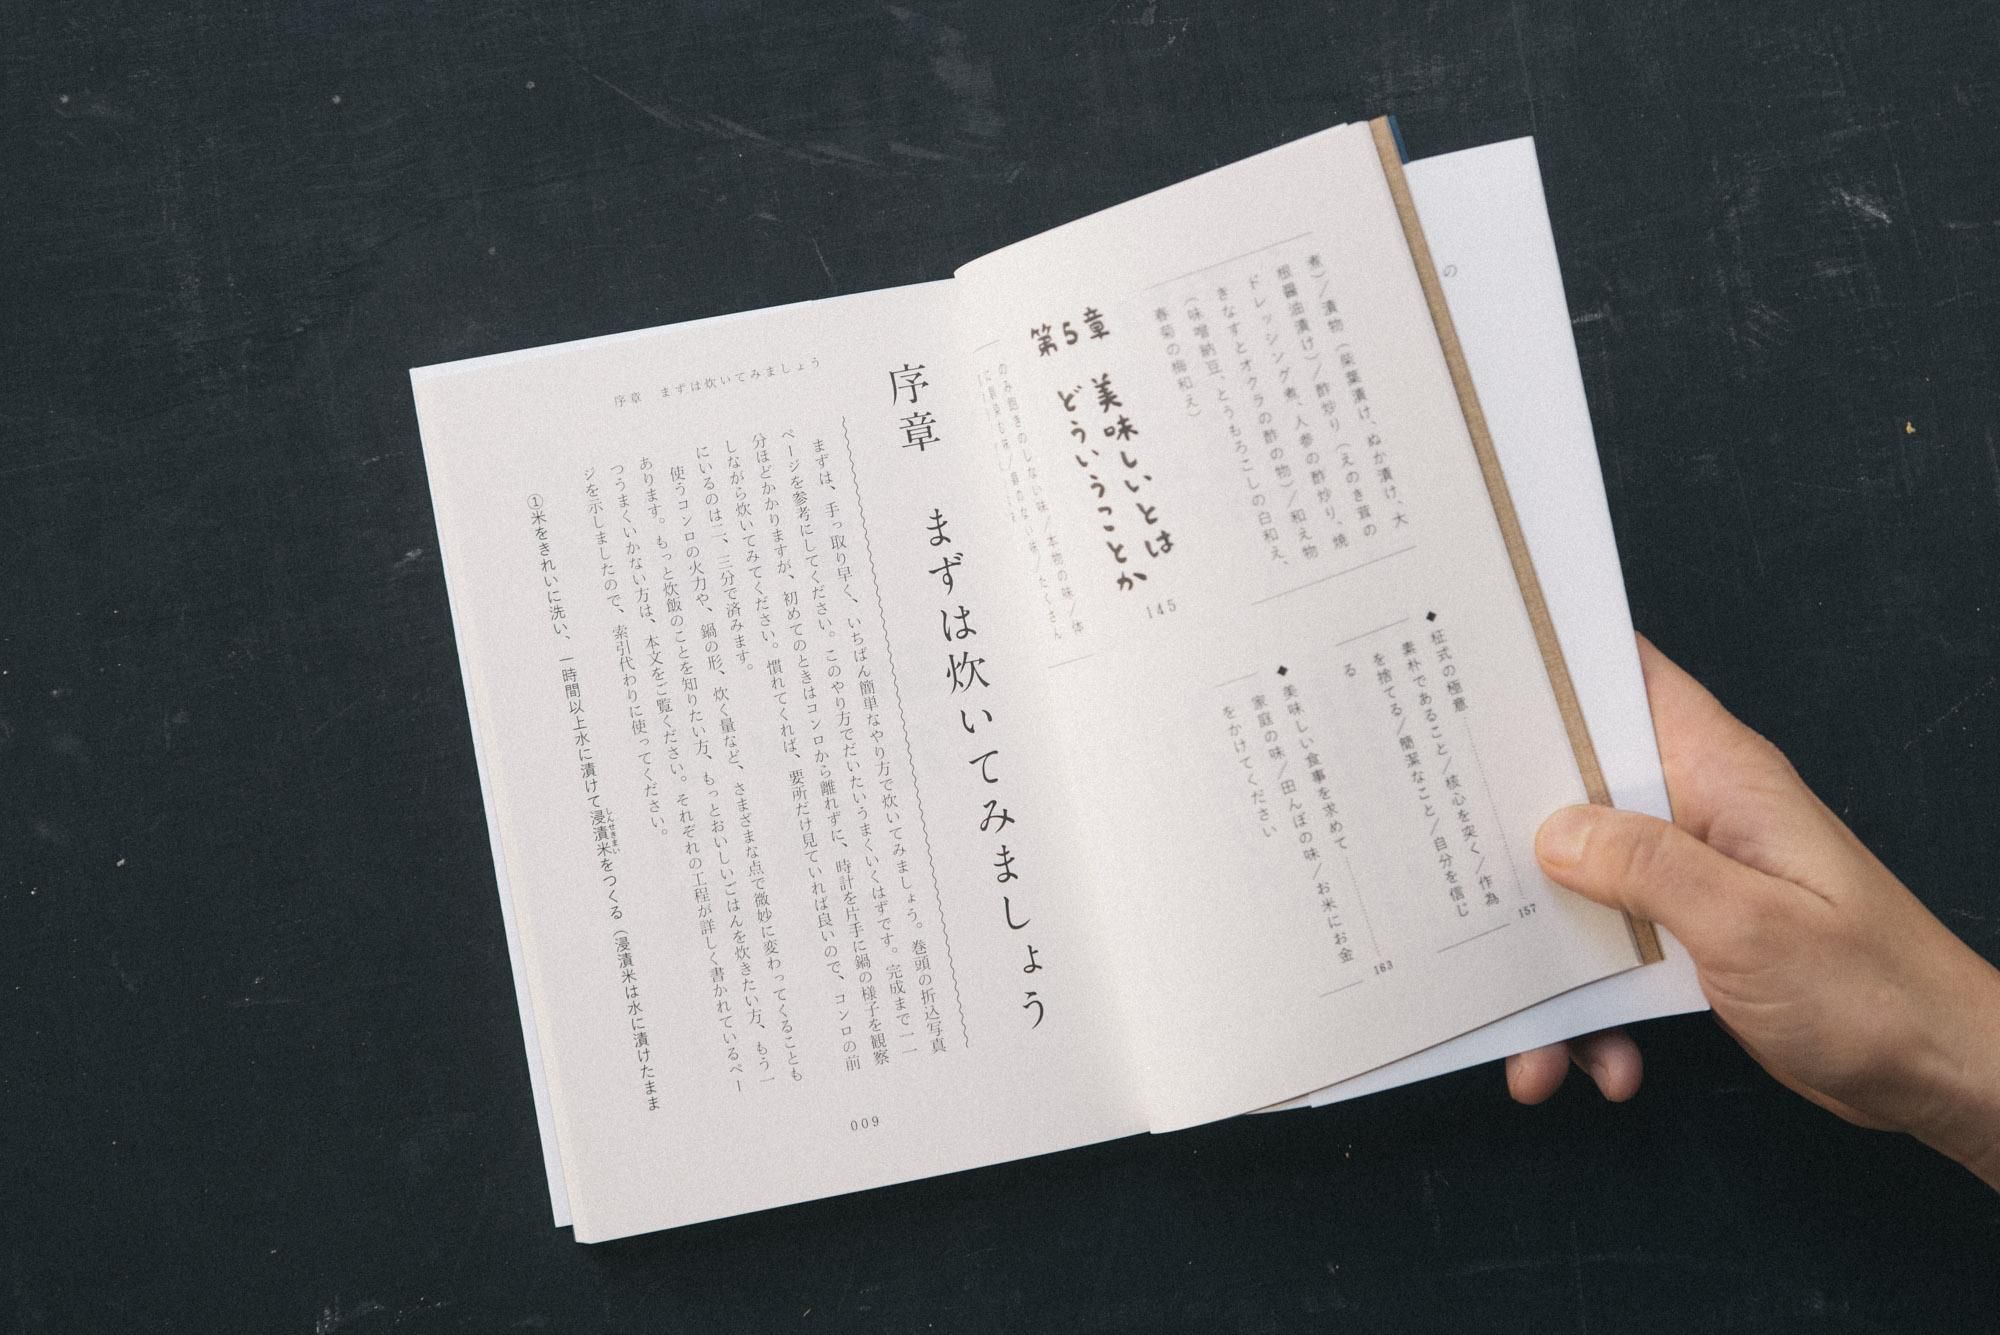 煮)／漬物(柴葉漬け、ぬか漬け、大
根醤油漬け)／酢炒り(えのき茸の
ドレッシング煮、人参の酢炒り、焼
きなすとオクラの酢の物)／和え物
(味噌納豆、とうもろこしの白和え、
春菊の梅和え)
第5章
美味しいとは
どういうことか
145
のみ飽きのしない味／本物の味／体
◆柾式の極意
157
素朴であること／核心を突く／作為
を捨てる／簡潔なこと／自分を信じ
る
◆美味しい食事を求めて
163
家庭の味／田んぼの味／お米にお金
をかけてください
の
序章　まずは炊いてみましょう
まずは、手っ取り早く、いちばん簡単なやり方で炊いてみましょう。巻頭の折込写真
ページを参考にしてください。このやり方でだいたいうまくいくはずです。完成まで二一
分ほどかかりますが、初めてのときはコンロから離れずに、時計を片手に鍋の様子を観察
しながら炊いてみてください。慣れてくれば、要所だけ見ていれば良いので、コンロの前
にいるのは二、三分で済みます。
使うコンロの火力や、鍋の形、炊く量など、さまざまな点で微妙に変わってくることも
あります。もっと炊飯のことを知りたい方、もっとおいしいごはんを炊きたい方、もう一
つうまくいかない方は、本文をご覧ください。それぞれの工程が詳しく書かれているペー
ジを示しましたので、索引代わりに使ってください。
①米をきれいに洗い、一時間以上水に漬けて浸漬米をつくる(浸漬米は水に漬けたまま
しんせきまい
序章　まずは炊いてみましょう
009